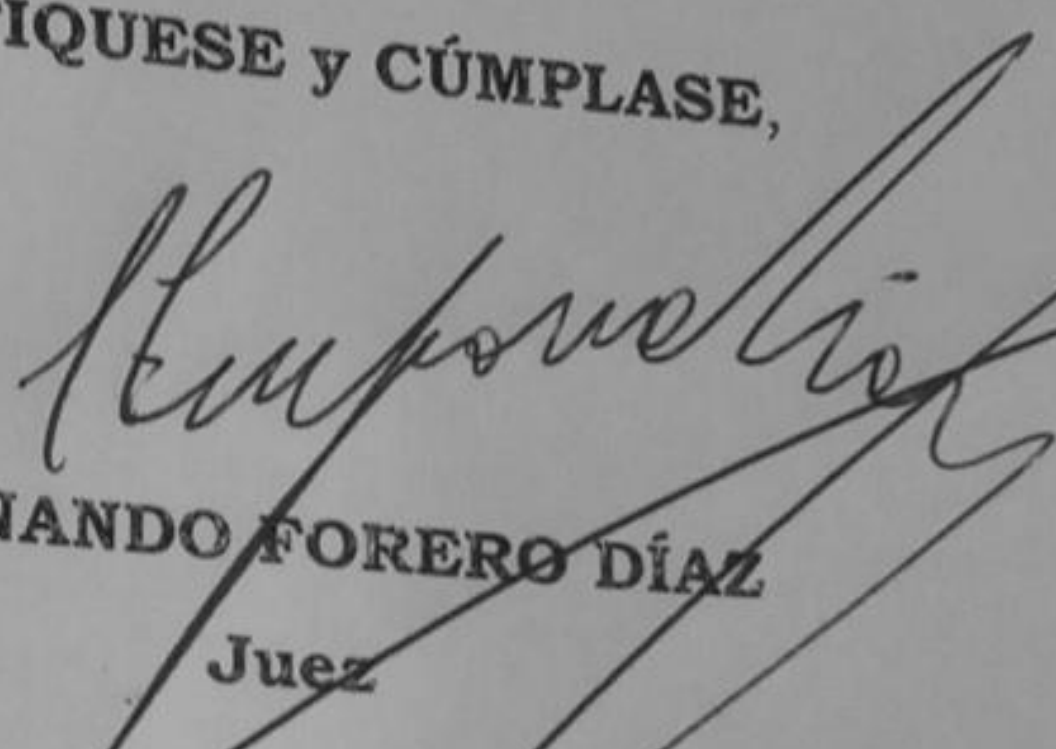 IQUESE y CÚMPLASE,
NANDO FORERO DÍAZ
Juez